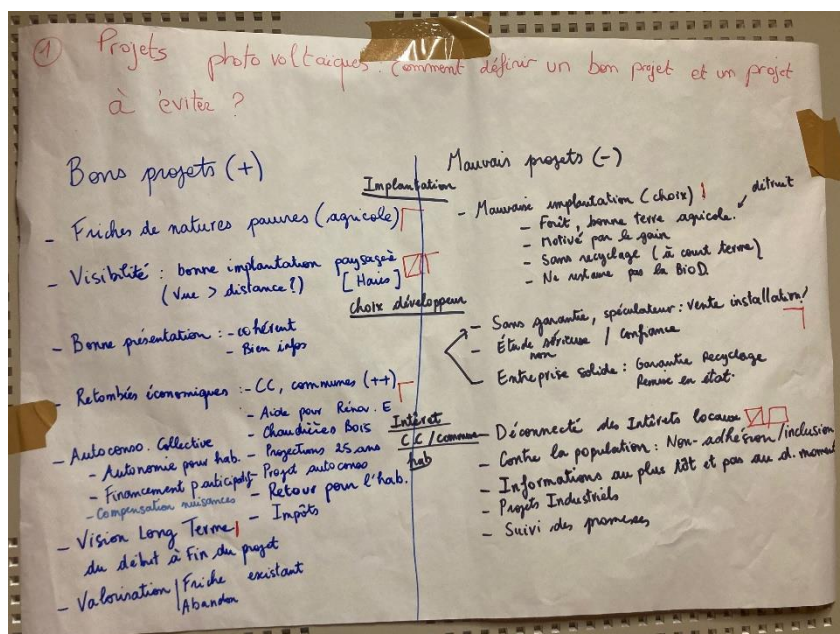 ① Projets photovoltaïques. Comment définir un bon projet et un projet
à éviter ?
Bons projets (+)
- Friches de natures pauvres (agricole)
- Visibilité : bonne implantation paysagée
(Vue > distance ?) [Haies]
- Bonne présentation : - cohérent
- Bien infos
- Retombées économiques : - CC, communes (++)
- Aide pour Rénov. E
- Chaudières Bois
- Projections 25 ans
- Projet autoconso
- Retour pour l'hab.
- Impôts
- Autoconso. Collective
- Autonomie pour hab.
- Financement participatif
- Compensation nuisances
- Vision Long Terme
du début à fin du projet
- Valorisation | Friche existant
Abandon
Implantation
choix développeur
Intérêt
CC / commune
hab
Mauvais projets (-)
- Mauvaise implantation (choix) !
détruit
- Forêt, bonne terre agricole.
- Motivé par le gain
- Sans recyclage (à court terme)
- Ne restaure pas la BioD
- Sans garantie, spéculateur : vente installation !
- Étude sérieuse / confiance
non
- Entreprise solide : Garantie Recyclage
Remise en état.
- Déconnecté des Intérêts locaux
- Contre la population : Non-adhésion/inclusion
- Informations au plus tôt et pas au d. moment
- Projets Industriels
- Suivi des promesses